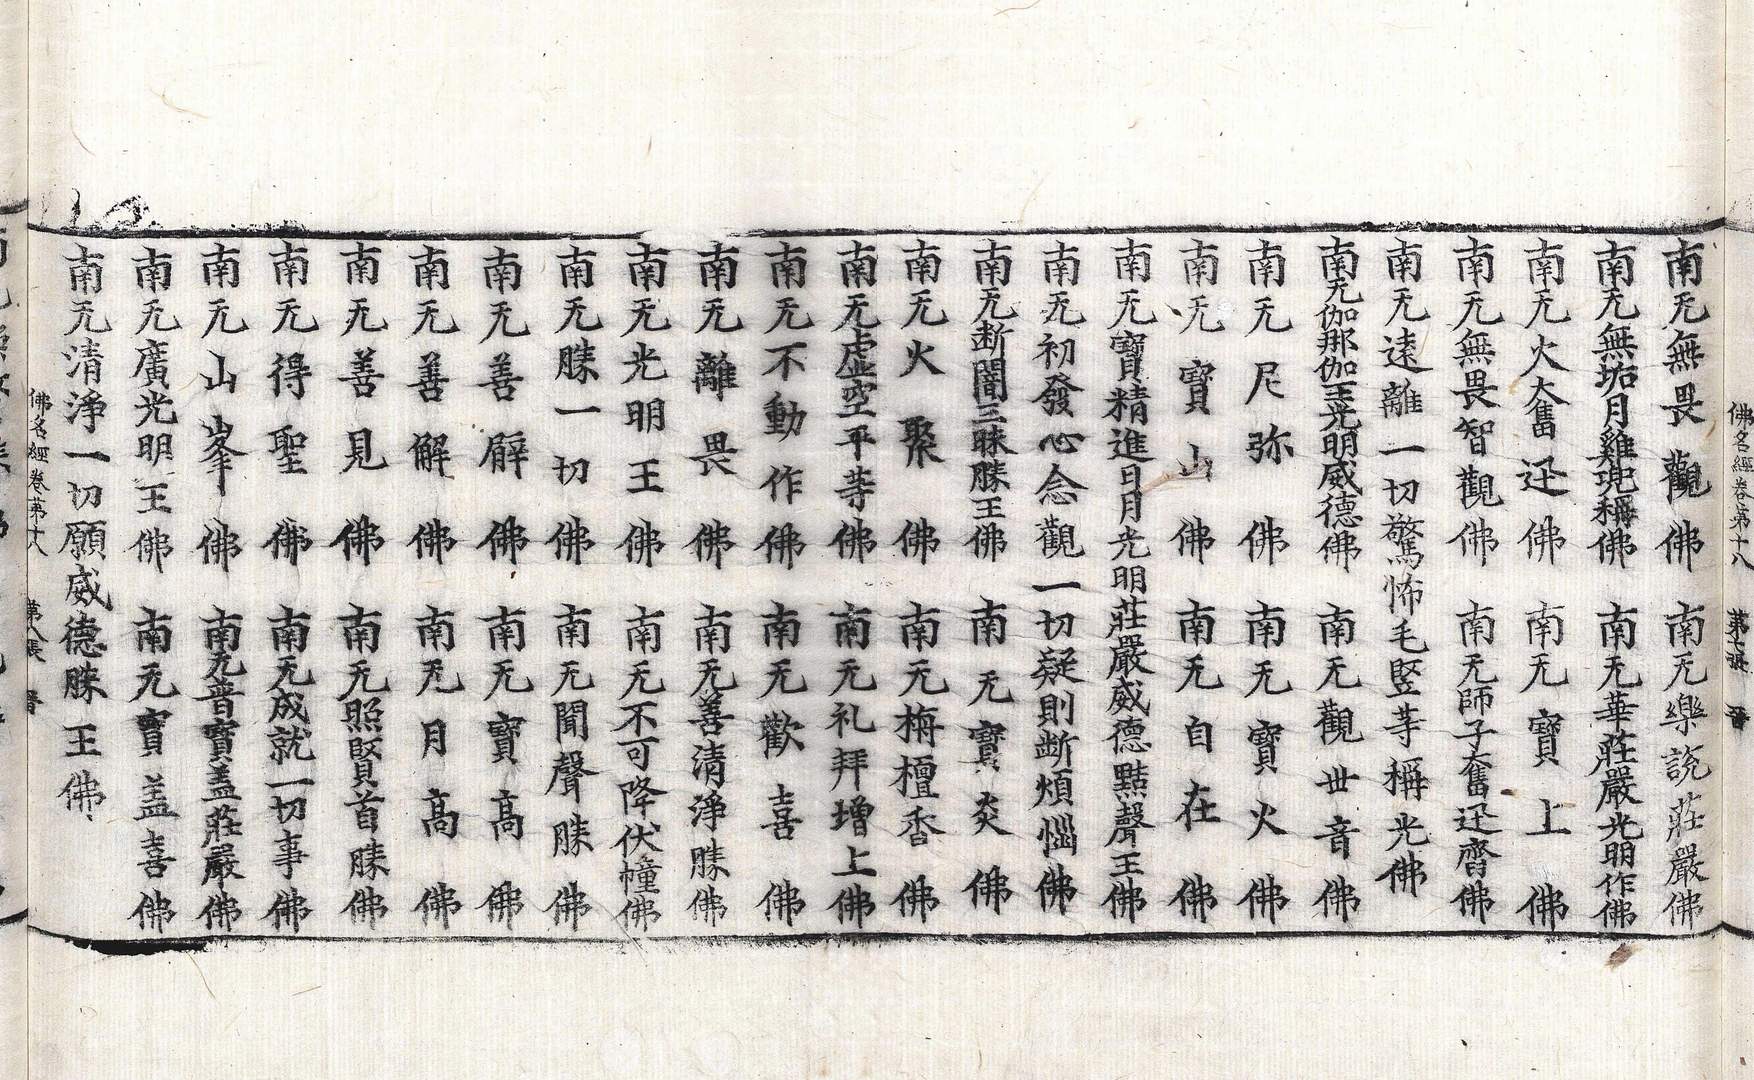 佛名經卷第十八 第七張 晉
南无無畏觀佛 南无樂說莊嚴佛
南无無垢月雞兜稱佛 南无華莊嚴光明作佛
南无火奮迅佛 南无寶上佛
南无無畏智觀佛 南无師子奮迅齊佛
南无遠離一切驚怖毛竪䓁稱光佛
南无伽那伽王光明威德佛 南无觀世音佛
南无尼弥佛 南无寶火佛
南无寶山佛 南无自在佛
南无寶精進日月光明莊嚴威德㸃聲王佛
南无初發心念觀一切疑則斷煩惱佛
南无断闇三昧勝王佛 南无寶炎佛
南无火聚佛 南无栴檀香佛
南无虛空平䓁佛 南无礼拜增上佛
南无不動作佛 南无歡喜佛
南无離畏佛 南无善清淨勝佛
南无光明王佛 南无不可降伏幢佛
南无勝一切佛 南无聞聲勝佛
南无善佛 南无寶高佛
南无善解佛 南无月高佛
南无善見佛 南无照賢首勝佛
南无得聖佛 南无成就一切事佛
南无山峯佛 南无普寶盖莊嚴佛
南无廣光明王佛 南无寶盖喜佛
南无清淨一切願威德勝王佛
佛名經卷苐十八 第八張 晉